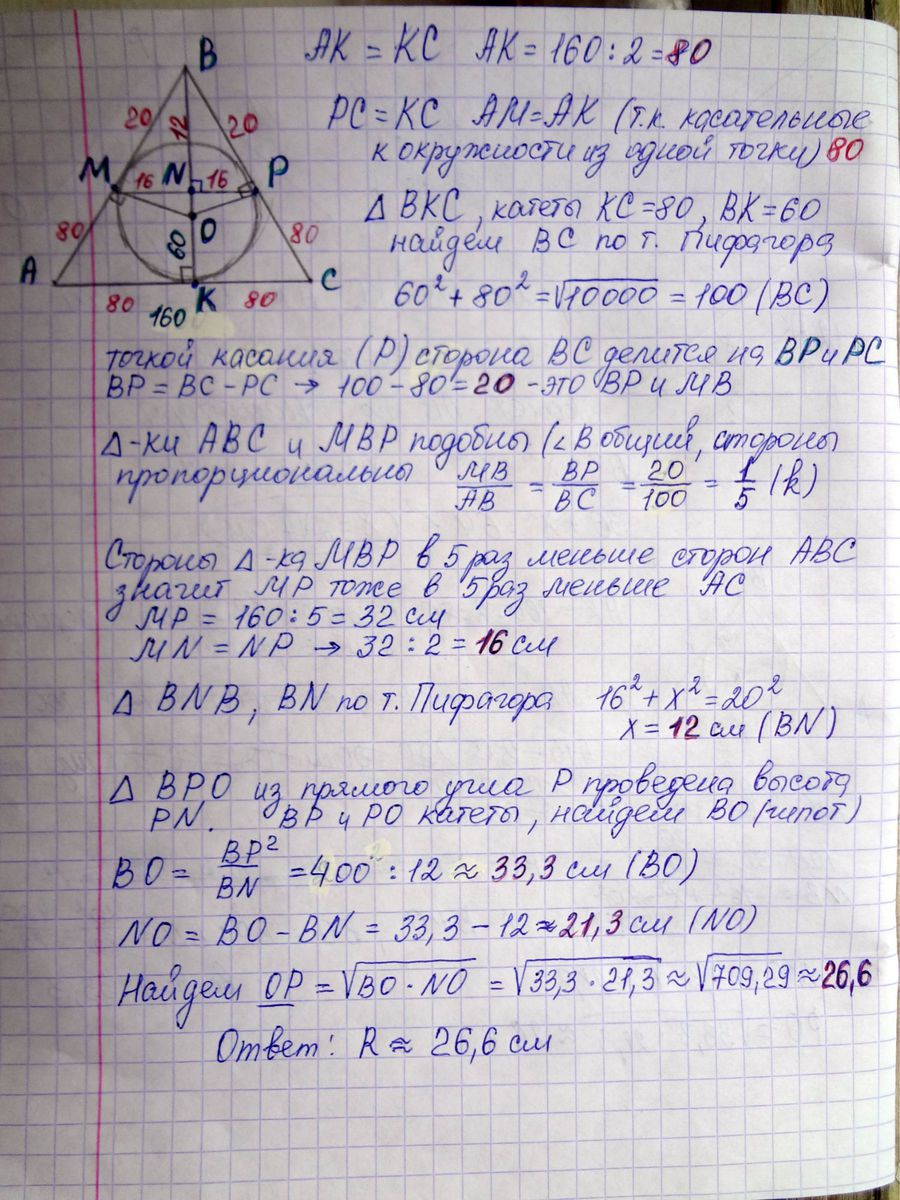 B
20
12
20
M
16
N
16
P
O
80
60
80
A
C
80
K
80
160
AK = KC AK = 160 : 2 = 80
PC = KC AM = AK (т.к. касательные
к окружности из одной точки) 80
Δ BKC, катеты KC = 80, BK = 60
найдем BC по т. Пифагора
60² + 80² = √10000 = 100 (BC)
точкой касания (P) сторона BC делится на BP и PC
BP = BC - PC → 100 - 80 = 20 - это BP и MB
Δ-ки ABC и MBP подобны (∠B общий, стороны
пропорциональны MB/AB = BP/BC = 20/100 = 1/5 (k)
Стороны Δ-ка MBP в 5 раз меньше сторон ABC
значит MP тоже в 5 раз меньше AC
MP = 160 : 5 = 32 см
MN = NP → 32 : 2 = 16 см
Δ BNB, BN по т. Пифагора 16² + x² = 20²
x = 12 см (BN)
Δ BPO из прямого угла P проведена высота
PN. BP и PO катеты, найдем BO (гипот)
BO = BP²/BN = 400 : 12 ≈ 33,3 см (BO)
NO = BO - BN = 33,3 - 12 ≈ 21,3 см (NO)
Найдем OP = √BO · NO = √33,3 · 21,3 ≈ √709,29 ≈ 26,6
Ответ: R ≈ 26,6 см